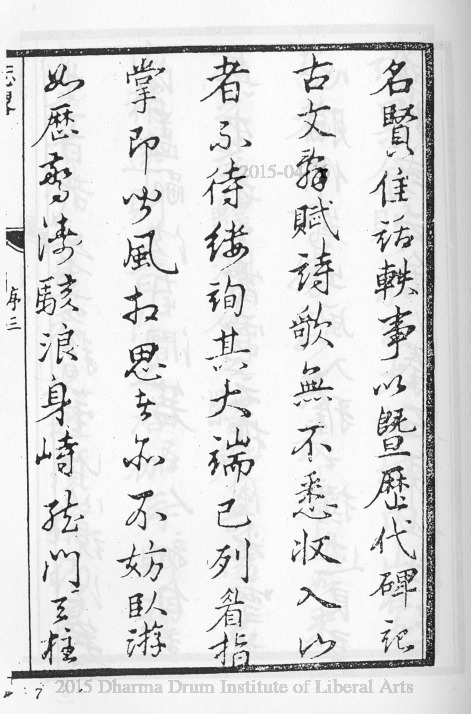 名賢佳話軼事以暨歷代碑記
古文辭賦詩歌無不悉收入山
者不待縷詢其大端已列眉指
掌即聞風相思者亦不妨臥游
如歷驚濤駭浪身峙龍門天柱
序三
7
2015-04
2015 Dharma Drum Institute of Liberal Arts